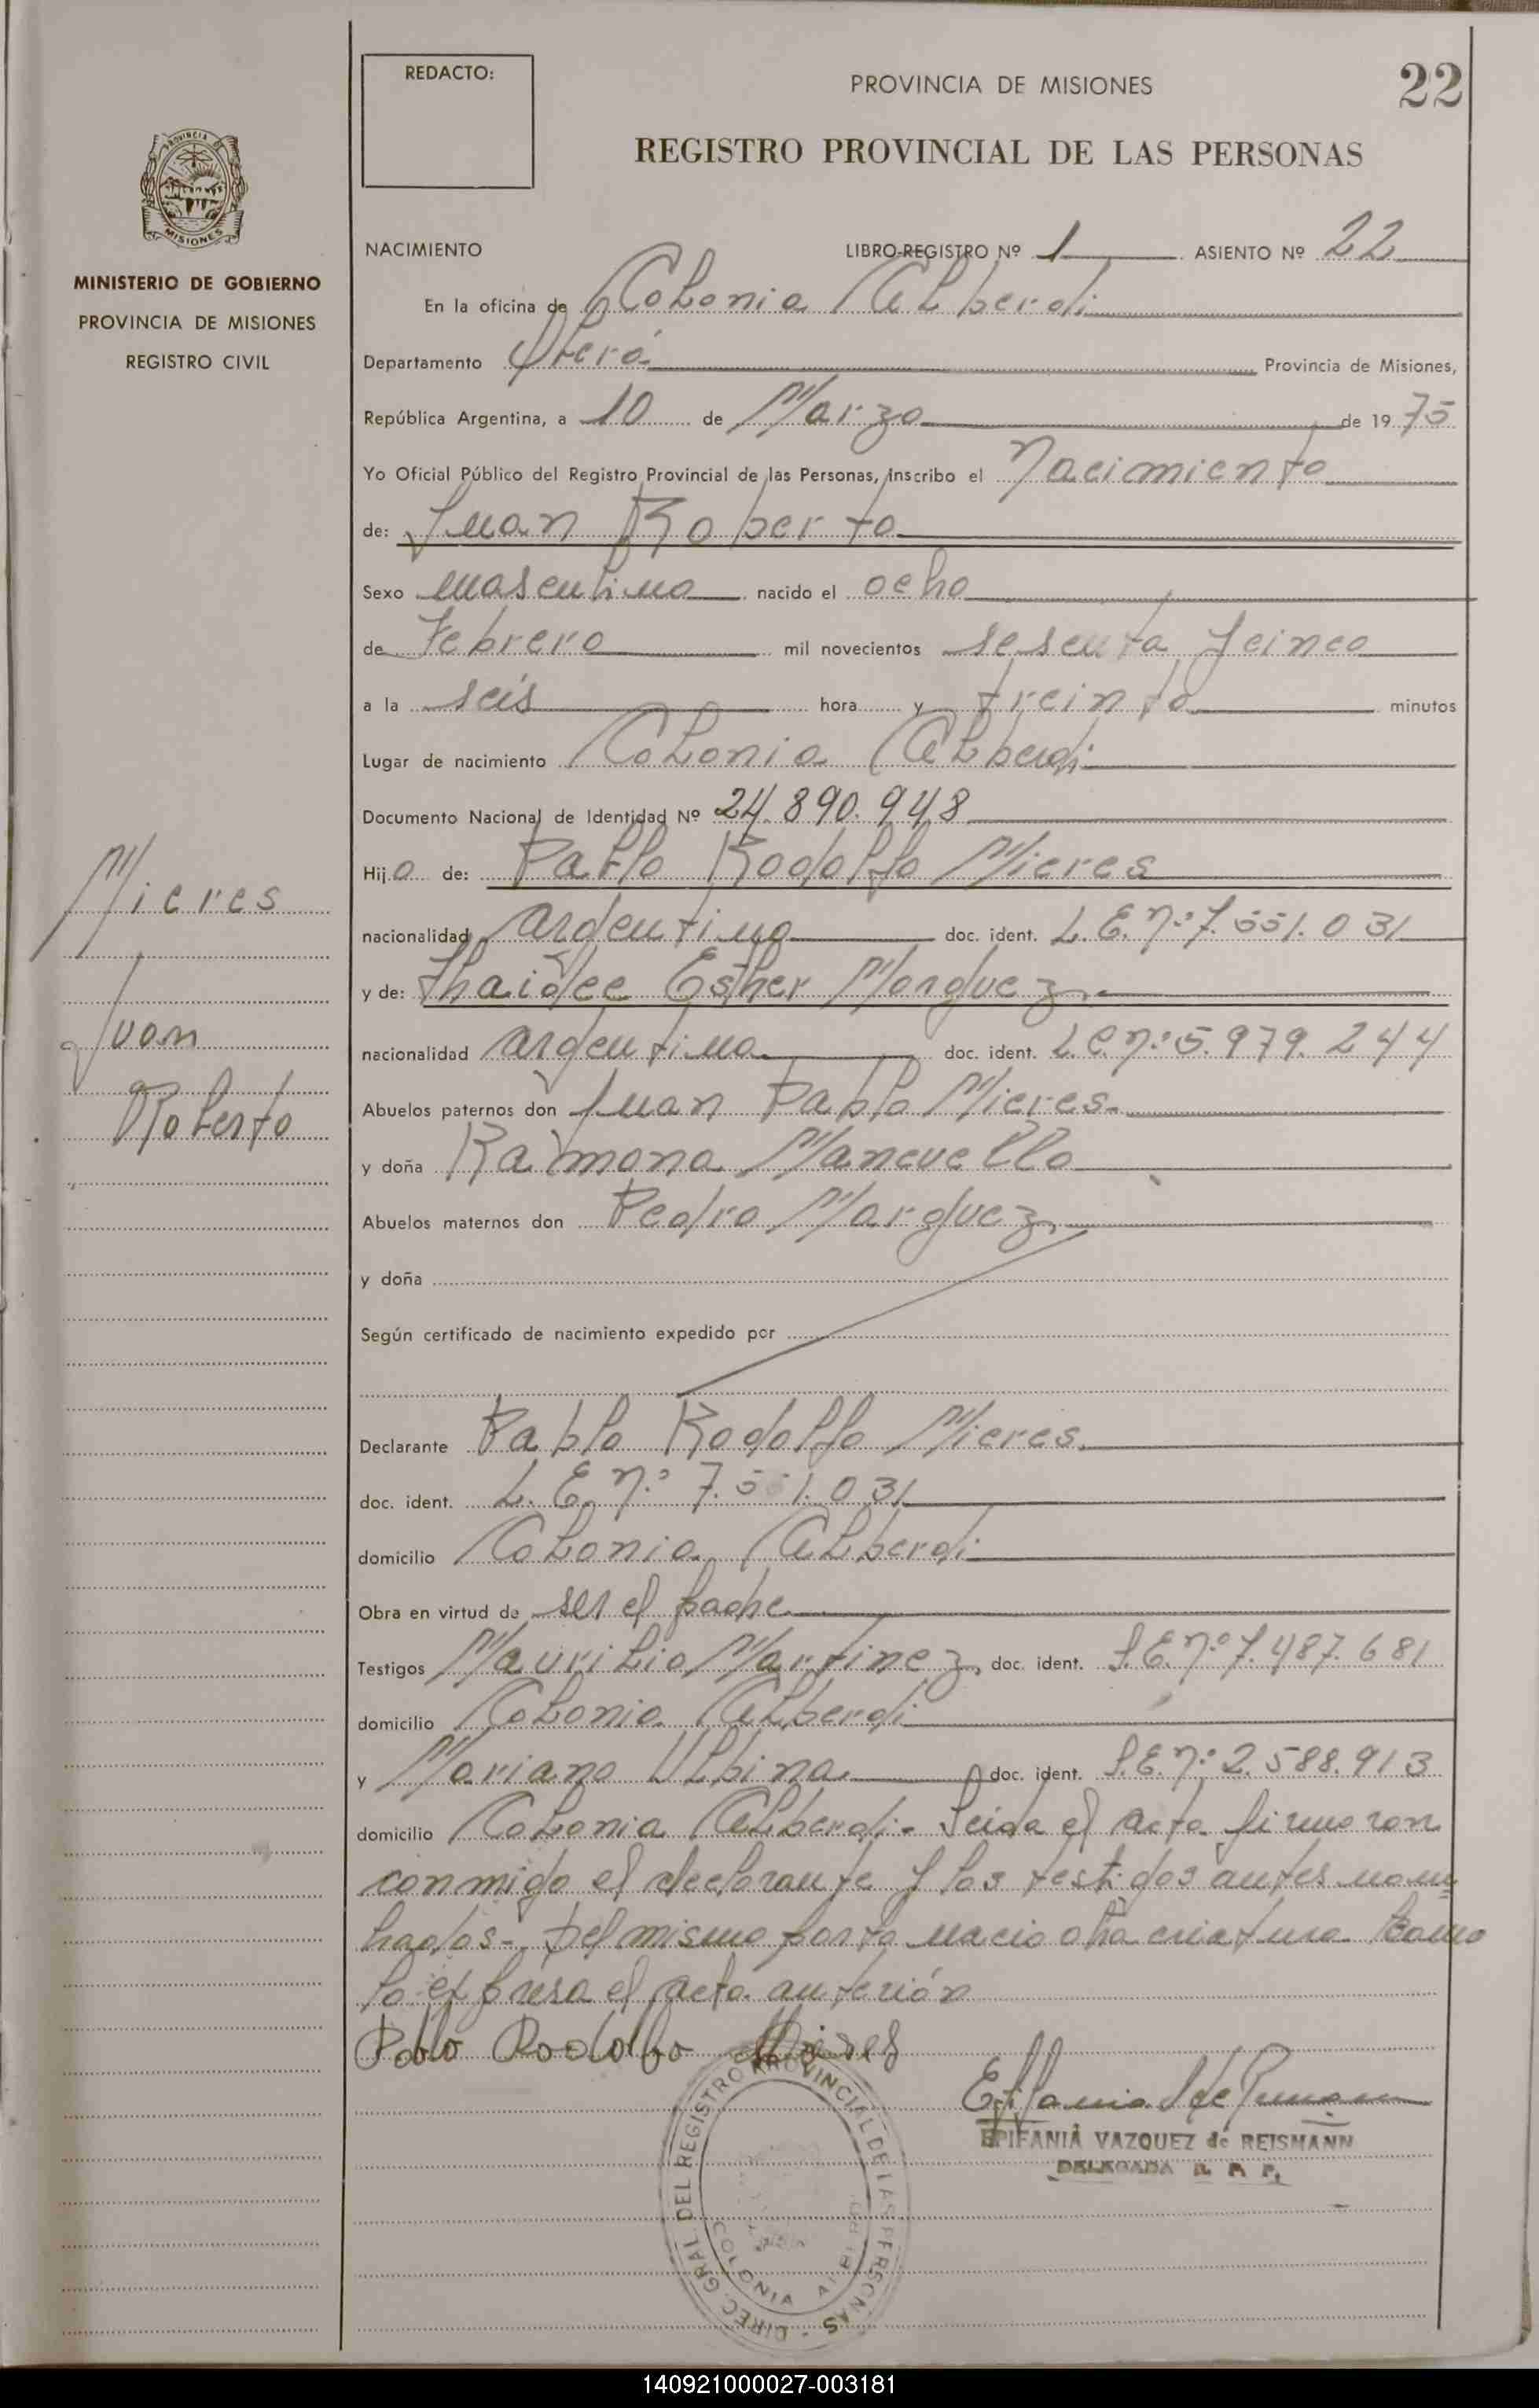 REDACTO:
PROVINCIA DE MISIONES
22
REGISTRO PROVINCIAL DE LAS PERSONAS
PROVINCIA
MISIONES
MINISTERIO DE GOBIERNO
PROVINCIA DE MISIONES
REGISTRO CIVIL
NACIMIENTO LIBRO-REGISTRO Nº 1 ASIENTO Nº 22
En la oficina de Colonia Alberdi
Departamento Oberá Provincia de Misiones,
República Argentina, a 10 de Marzo de 1975
Yo Oficial Público del Registro Provincial de las Personas, inscribo el Nacimiento
de: Juan Roberto
Sexo masculino nacido el ocho
de Febrero mil novecientos sesenta y cinco
a la seis hora y treinta minutos
Lugar de nacimiento Colonia Alberdi
Documento Nacional de Identidad Nº 24.890.948
Hijo de: Pablo Rodolfo Mieres
nacionalidad argentino doc. ident. L.E.nº 7.551.031
y de: Thaidee Esther Marquez
nacionalidad argentina doc. ident. L.C.nº 5.979.244
Abuelos paternos don Juan Pablo Mieres
y doña Ramona Mancuello
Abuelos maternos don Pedro Marquez
y doña
Según certificado de nacimiento expedido por
Declarante Pablo Rodolfo Mieres
doc. ident. L.E.nº 7.551.031
domicilio Colonia Alberdi
Obra en virtud de ser el padre
Testigos Maurilio Martinez, doc. ident. L.E.nº 7.487.681
domicilio Colonia Alberdi
y Mariano Ulbina doc. ident. L.E.nº 2.588.913
domicilio Colonia Alberdi- Leida el acta firmaron
conmigo el declarante y los testigos antes nom=
brados- Del mismo parto nacio otra criatura como
lo expresa el acta anterión
Pablo Rodolfo Mieres
EPIFANIA VAZQUEZ de REISMANN
DELEGADA R. P. P.
DIREC. GRAL. DEL REGISTRO PROVINCIAL DE LAS PERSONAS
COLONIA
Mieres
Juan
Roberto
140921000027-003181